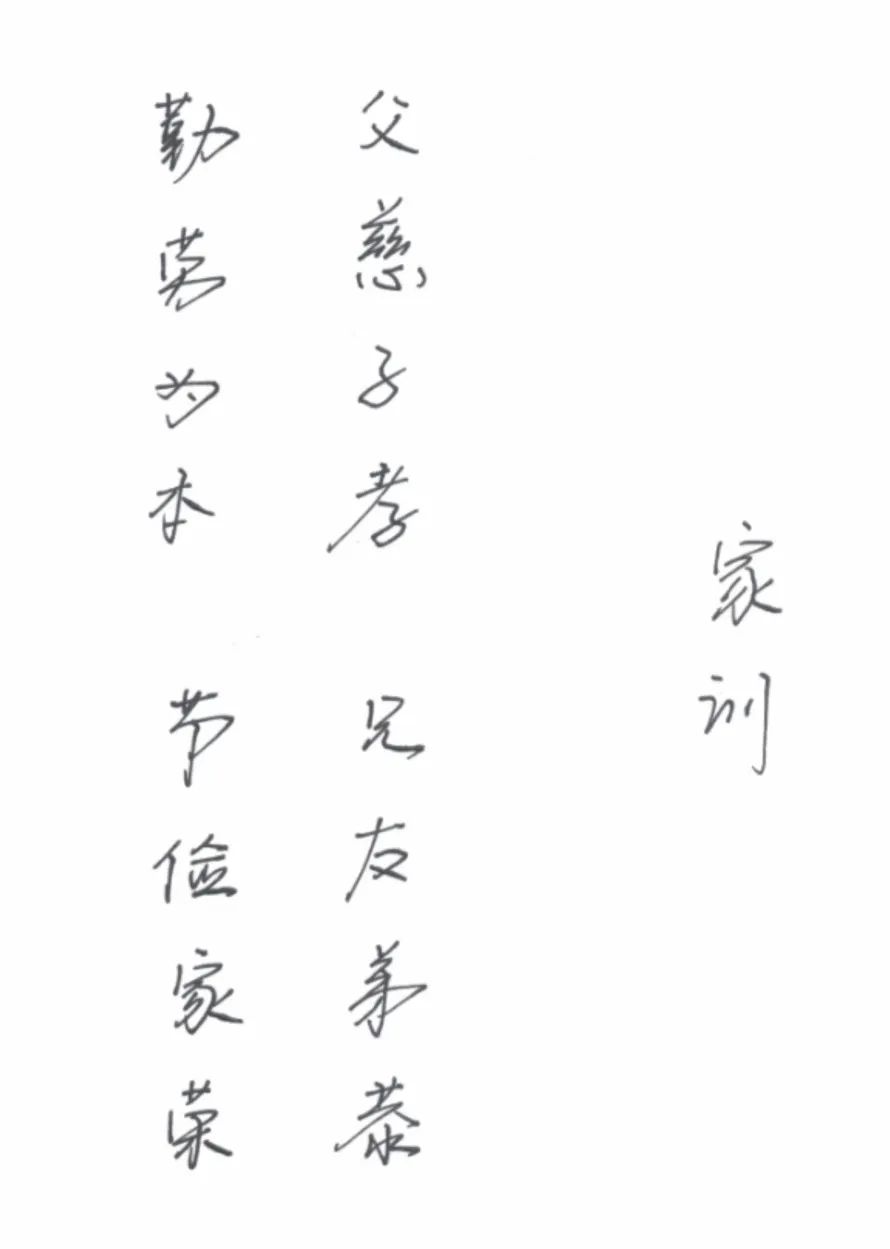 家训
父慈子孝 兄友弟恭
勤劳为本 节俭家荣